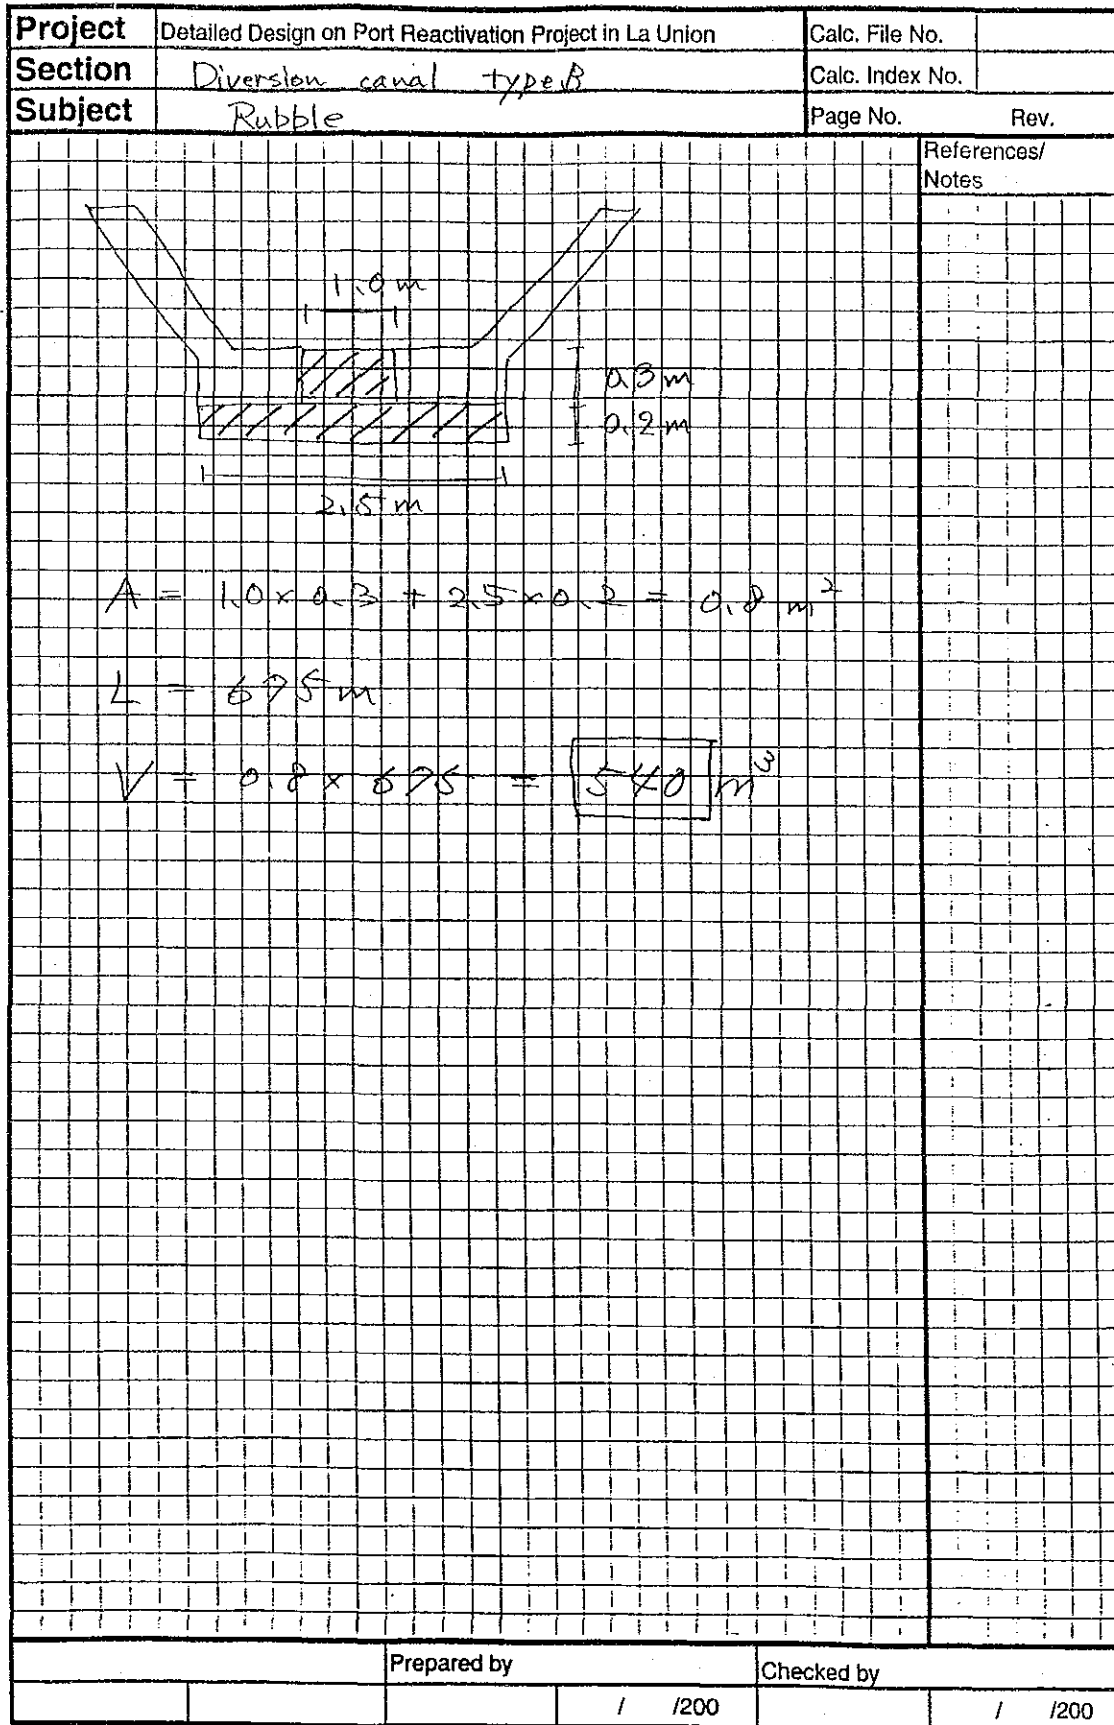 Project Detailed Design on Port Reactivation Project in La Union Calc. File No.
Section Diversion canal type B Calc. Index No.
Subject Rubble Page No. Rev.
References/
Notes
1.0 m
0.3 m
0.2 m
2.5 m
A = 1.0 x 0.3 + 2.5 x 0.2 = 0.8 m²
L = 675 m
V = 0.8 x 675 = 540 m³
Prepared by Checked by
/ /200 / /200